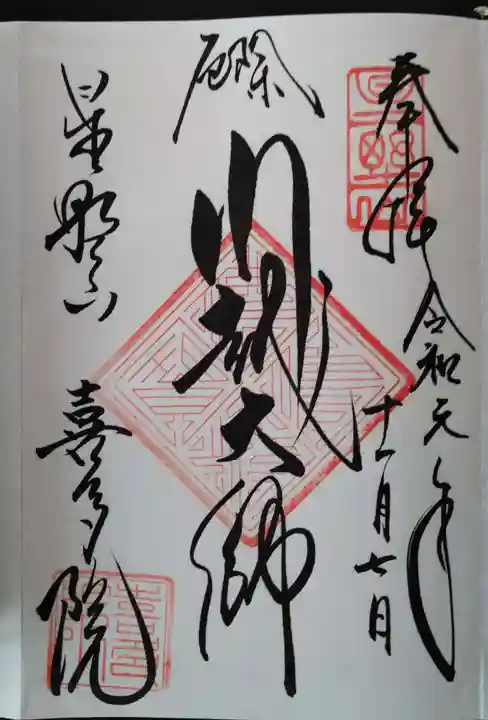 奉拝 令和元年
十一月七日
厄除
川越大師
星野山 喜多院